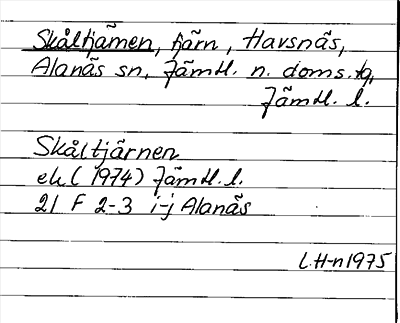 Skåltjärnen, tjärn, Havsnäs,
Alanäs sn, Jämtl. n. doms.tg,
Jämtl. l.
Skåltjärnen
ek (1974) Jämtl. l.
21 F 2-3 i-j Alanäs
L.H-n 1975